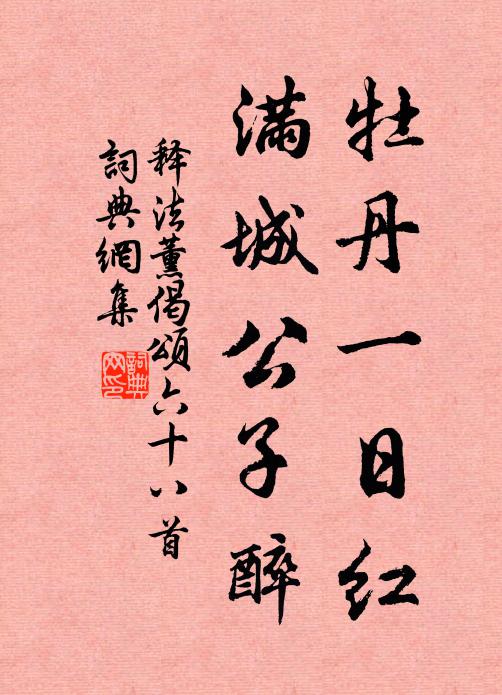 牡丹一日红
满城公子醉
释法薰偈頌六十八首
詞典網集
詞典网印